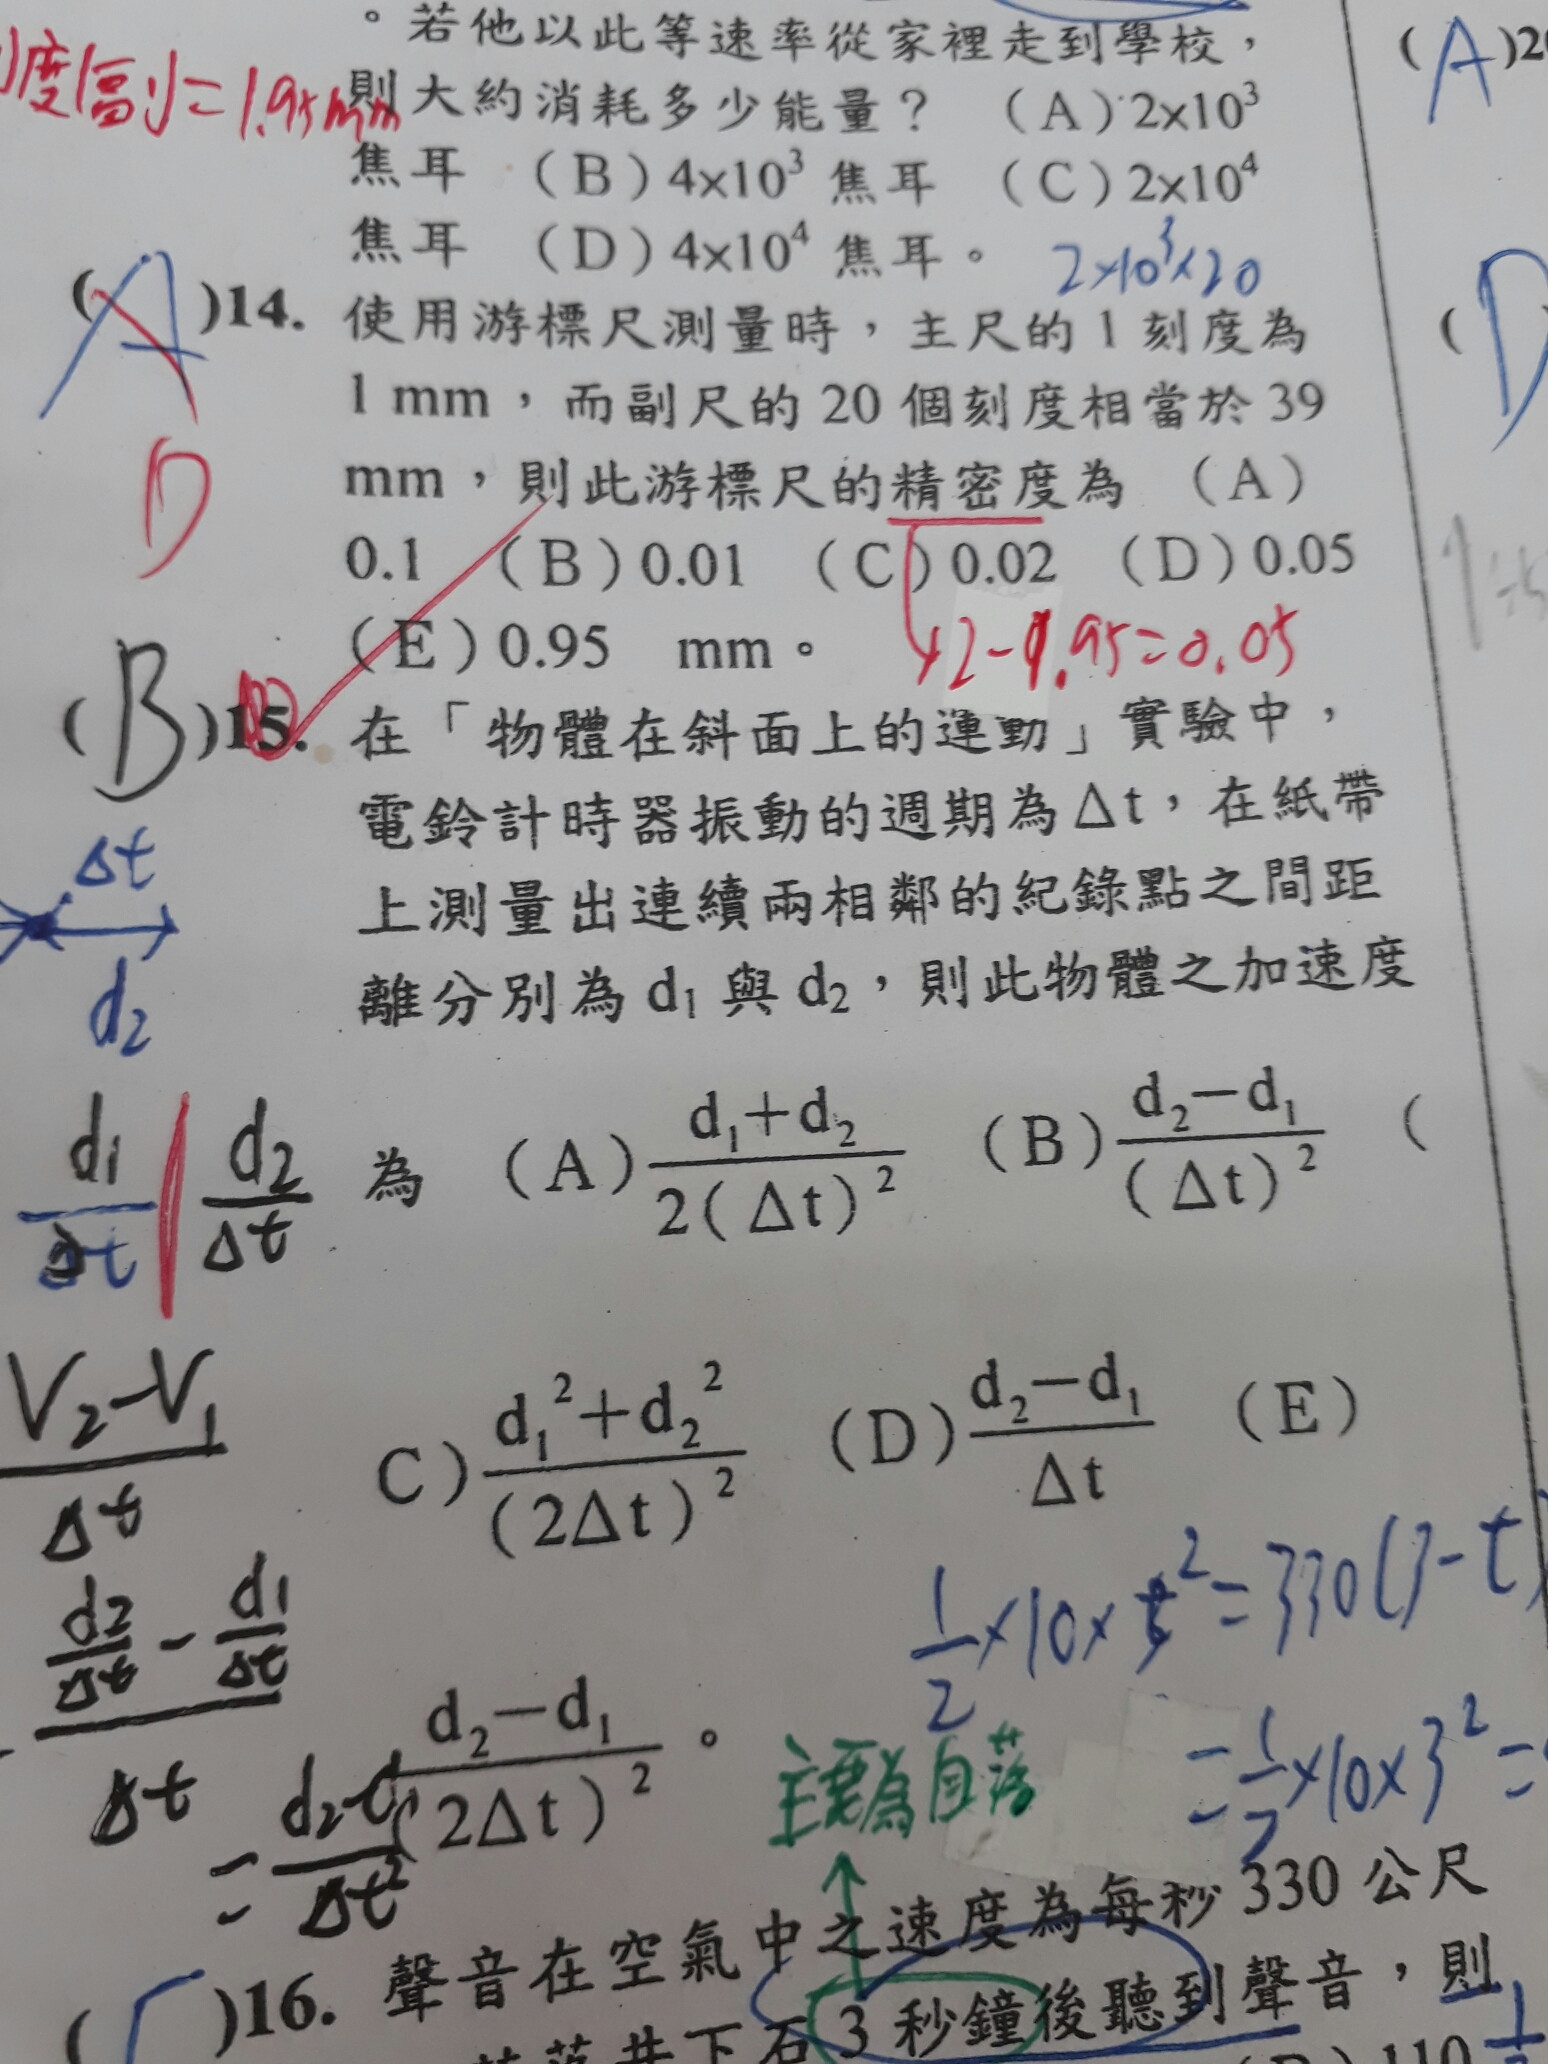 。若他以此等速率從家裡走到學校，
則大約消耗多少能量？ (A) 2×10³
焦耳 (B) 4×10³ 焦耳 (C) 2×10⁴
焦耳 (D) 4×10⁴ 焦耳。
2×10³×20
度(副)=1.95mm
(A)14. 使用游標尺測量時，主尺的 1 刻度為
1 mm，而副尺的 20 個刻度相當於 39
mm，則此游標尺的精密度為 (A)
0.1 (B) 0.01 (C) 0.02 (D) 0.05
(E) 0.95 mm。
D
2-1.95=0.05
(B)15. 在「物體在斜面上的運動」實驗中，
電鈴計時器振動的週期為Δt，在紙帶
上測量出連續兩相鄰的紀錄點之間距
離分別為 d₁ 與 d₂，則此物體之加速度
為 (A) d₁+d₂ / 2(Δt)² (B) d₂−d₁ / (Δt)² (
C) d₁²+d₂² / (2Δt)² (D) d₂−d₁ / Δt (E)
d₂−d₁ / (2Δt)² 。
Δt
d₂
d₁ / Δt d₂ / Δt
V₂-V₁
Δt
d₂/Δt - d₁/Δt
Δt
½×10×t²=330(3-t)
=½×10×3²=
主要為自落
( )16. 聲音在空氣中之速度為每秒 330 公尺
3 秒鐘後聽到聲音，則
110
(A)20
(D